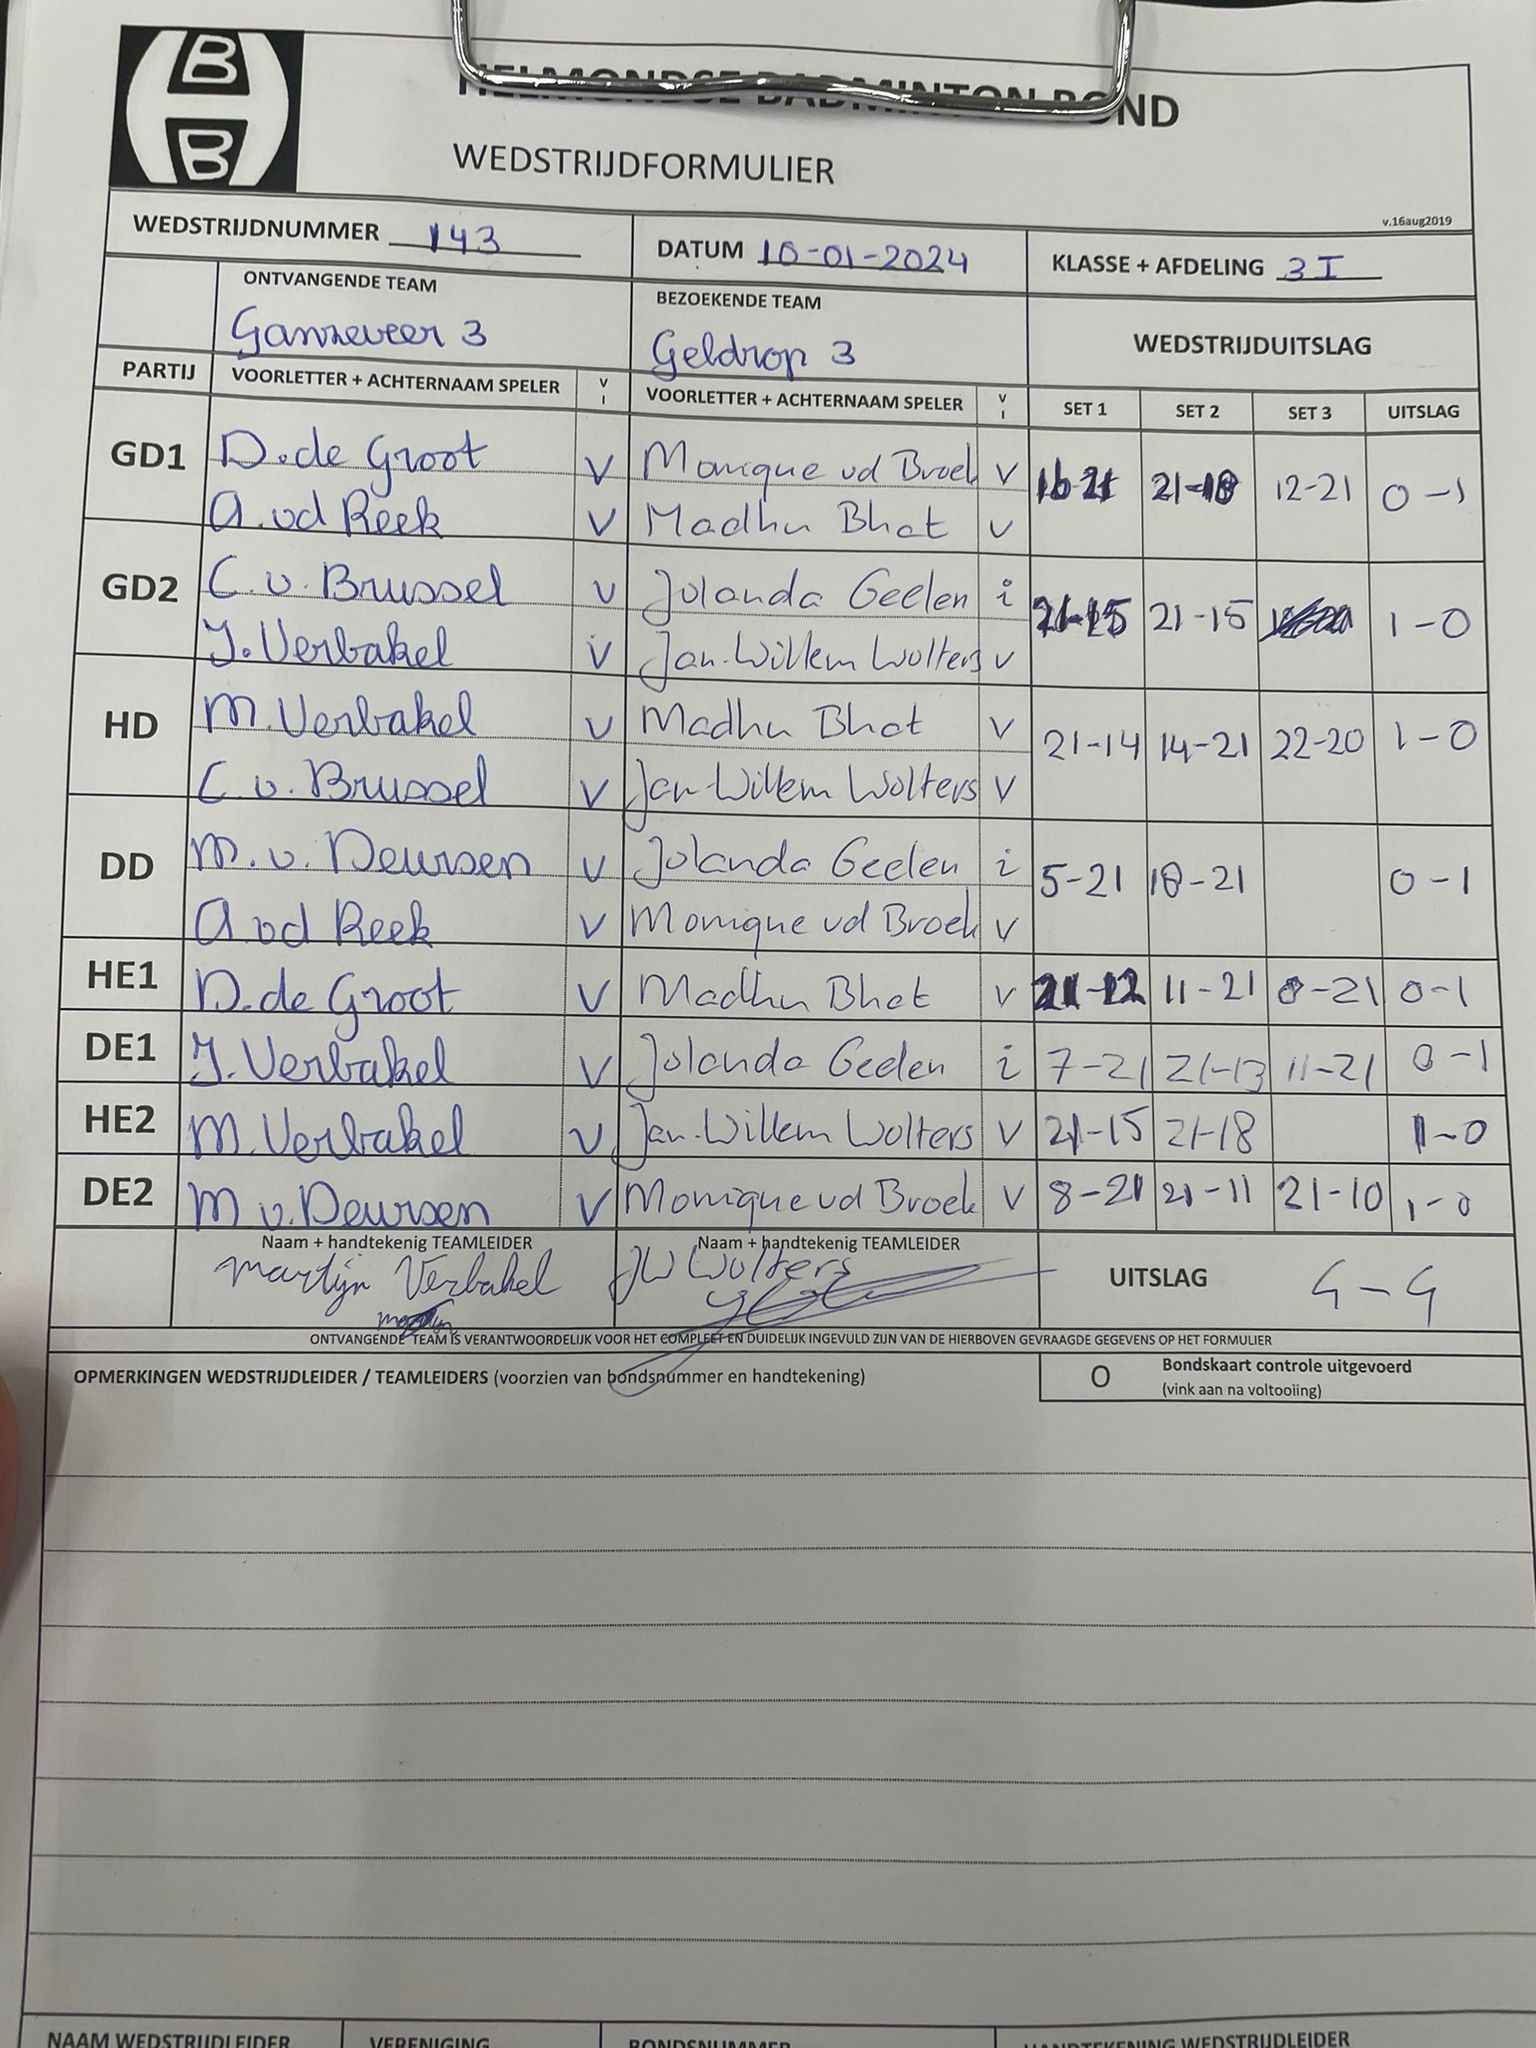 B
B
HELMONDSE BADMINTON BOND
WEDSTRIJDFORMULIER
v.16aug2019
WEDSTRIJDNUMMER 143 DATUM 10-01-2024 KLASSE + AFDELING 3 I
ONTVANGENDE TEAM BEZOEKENDE TEAM WEDSTRIJDUITSLAG
Ganzeveer 3 Geldrop 3
PARTIJ VOORLETTER + ACHTERNAAM SPELER V I VOORLETTER + ACHTERNAAM SPELER V I SET 1 SET 2 SET 3 UITSLAG
GD1 D. de Groot V Monique vd Broek V 16-21 21-18 12-21 0-1
A. vd Reek V Madhu Bhat V
GD2 C. v. Brussel V Jolanda Geelen i 21-15 21-15 1-0
J. Verbakel V Jan-Willem Wolters V
HD M. Verbakel V Madhu Bhat V 21-14 14-21 22-20 1-0
C. v. Brussel V Jan-Willem Wolters V
DD M. v. Deursen V Jolanda Geelen i 5-21 18-21 0-1
A. vd Reek V Monique vd Broek V
HE1 D. de Groot V Madhu Bhat V 21-12 11-21 8-21 0-1
DE1 J. Verbakel V Jolanda Geelen i 7-21 21-13 11-21 0-1
HE2 M. Verbakel V Jan-Willem Wolters V 21-15 21-18 1-0
DE2 M v. Deursen V Monique vd Broek V 8-21 21-11 21-10 1-0
Naam + handtekenig TEAMLEIDER Naam + handtekenig TEAMLEIDER UITSLAG 4-4
Martijn Verbakel JW Wolters
ONTVANGENDE TEAM IS VERANTWOORDELIJK VOOR HET COMPLEET EN DUIDELIJK INGEVULD ZIJN VAN DE HIERBOVEN GEVRAAGDE GEGEVENS OP HET FORMULIER
OPMERKINGEN WEDSTRIJDLEIDER / TEAMLEIDERS (voorzien van bondsnummer en handtekening) O Bondskaart controle uitgevoerd
(vink aan na voltooiing)
NAAM WEDSTRIJDLEIDER VERENIGING BONDSNUMMER HANDTEKENING WEDSTRIJDLEIDER